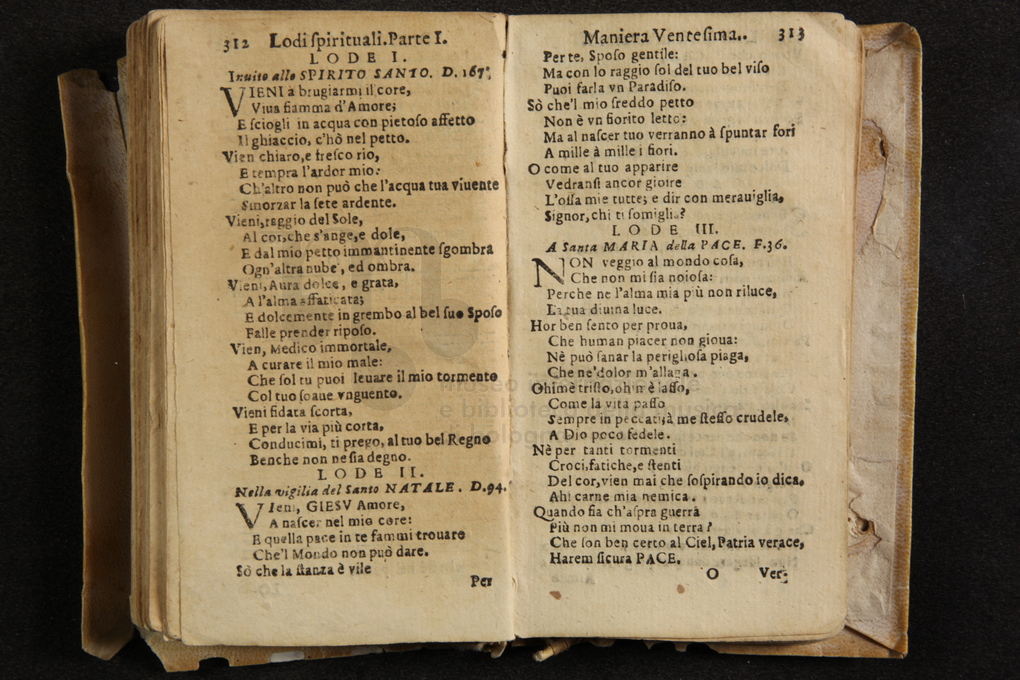 312 Lodi ſpirituali. Parte I.
LODE I.
Inuito allo SPIRITO SANTO. D. 167.
VIENI à brugiarmi il core,
Viua fiamma d'Amore;
E ſciogli in acqua con pietoſo affetto
Il ghiaccio, c'hò nel petto.
Vien chiaro, e freſco rio,
E tempra l'ardor mio:
Ch'altro non può che l'acqua tua viuente
Smorzar la ſete ardente.
Vieni, raggio del Sole,
Al cor, che s'ange, e dole,
E dal mio petto immantinente ſgombra
Ogn'altra nube, ed ombra.
Vieni, Aura dolce, e grata,
A l'alma affaticata;
E dolcemente in grembo al bel ſuo Spoſo
Falle prender ripoſo.
Vien, Medico immortale,
A curare il mio male:
Che ſol tu puoi leuare il mio tormento
Col tuo ſoaue vnguento.
Vieni fidata ſcorta,
E per la via più corta,
Conducimi, ti prego, al tuo bel Regno
Benche non ne ſia degno.
LODE II.
Nella vigilia del Santo NATALE. D. 94.
VIeni, GIESV Amore,
A naſcer nel mio core:
E quella pace in te fammi trouare
Che'l Mondo non può dare.
Sò che la ſtanza è vile
Per
Maniera Venteſima.. 313
Per te, Spoſo gentile:
Ma con lo raggio ſol del tuo bel viſo
Puoi farla vn Paradiſo.
Sò che'l mio freddo petto
Non è vn fiorito letto:
Ma al naſcer tuo verranno à ſpuntar fori
A mille à mille i fiori.
O come al tuo apparire
Vedranſi ancor gioire
L'oſſa mie tutte; e dir con merauiglia,
Signor, chi ti ſomiglia?
LODE III.
A Santa MARIA della PACE. F. 36.
NON veggio al mondo coſa,
Che non mi ſia noioſa:
Perche ne l'alma mia più non riluce,
La tua diuina luce.
Hor ben ſento per proua,
Che human piacer non gioua:
Nè può ſanar la periglioſa piaga,
Che ne'dolor m'allaga.
Ohimè triſto, ohimè laſſo,
Come la vita paſſo
Sempre in peccati, à me ſteſſo crudele,
A Dio poco fedele.
Nè per tanti tormenti
Croci, fatiche, e ſtenti
Del cor, vien mai che ſoſpirando io dica,
Ahi carne mia nemica.
Quando fia ch'aſpra guerra
Più non mi moua in terra?
Che ſon ben certo al Ciel, Patria verace,
Harem ſicura PACE.
O Ver-